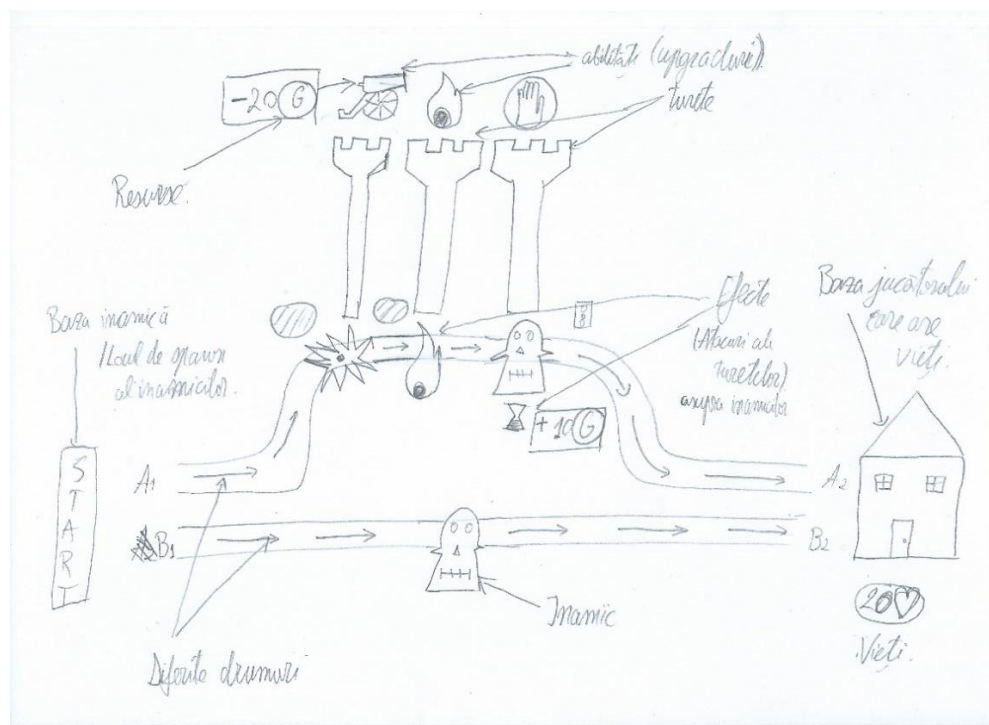 abilități (upgraduri)
turete
-20 G
Resurse.
Baza inamică
/Locul de spawn
al inamicilor.
Efecte
(Atacuri ale
turetelor)
asupra inamicilor
Baza jucătorului
care are
vieți.
+10 G
START
A1
A2
B1
B2
Inamic
20
Vieți.
Diferite drumuri